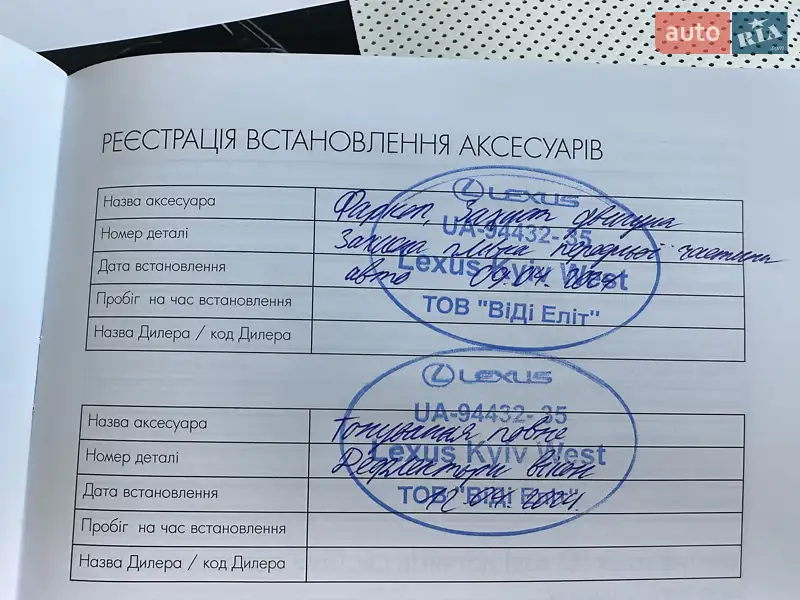 auto RIA .com
РЕЄСТРАЦІЯ ВСТАНОВЛЕННЯ АКСЕСУАРІВ
Назва аксесуара
Фаркоп, Захист двигуна
Номер деталі
Захисна плівка передньої частини
Дата встановлення
авто 09.04.
Пробіг на час встановлення
Назва Дилера / код Дилера
LEXUS
UA-94432-35
Lexus Kyiv West
ТОВ "ВіДі Еліт"
Назва аксесуара
Тонування повне
Номер деталі
Дефлектори вікон
Дата встановлення
Пробіг на час встановлення
Назва Дилера / код Дилера
LEXUS
UA-94432-35
Lexus Kyiv West
ТОВ "ВіДі Еліт"